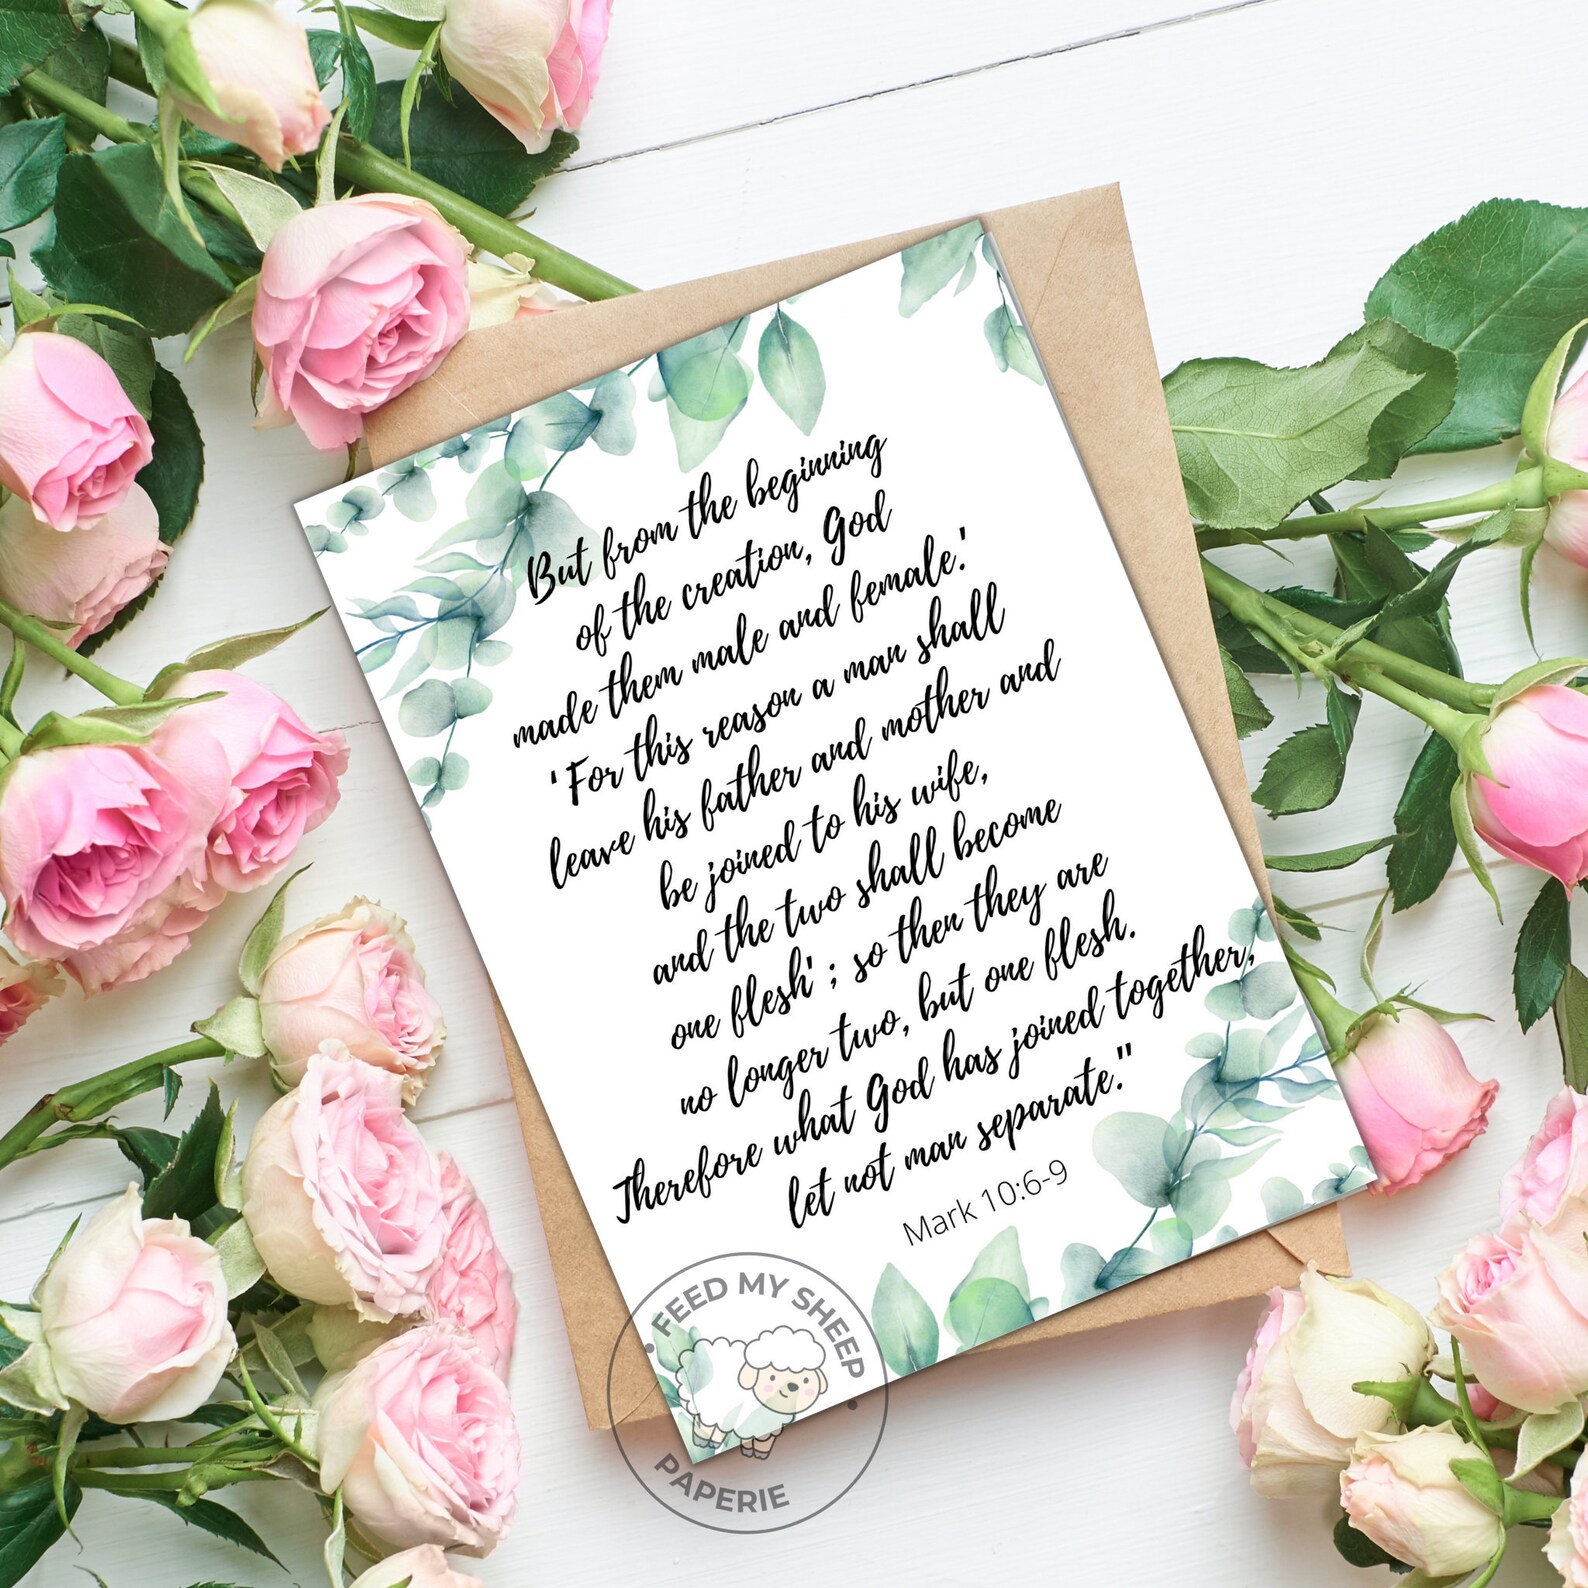 But from the beginning
of the creation, God
made them male and female.'
'For this reason a man shall
leave his father and mother and
be joined to his wife,
and the two shall become
one flesh' ; so then they are
no longer two, but one flesh.
Therefore what God has joined together,
let not man separate."
Mark 10:6-9
FEED MY SHEEP
PAPERIE